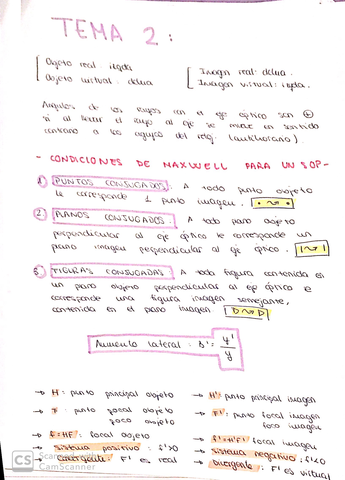 TEMA 2:
Objeto real: izqda
Objeto virtual: dcha
Imagen real: dcha.
Imagen virtual: izqda.
Ángulos de los rayos con el eje óptico son ⊕
si al llevar el rayo al eje se mueve en sentido
contrario a las agujas del reloj (antihorario).
- CONDICIONES DE MAXWELL PARA UN SOP -
1 PUNTOS CONJUGADOS: A todo punto objeto
le corresponde 1 punto imagen.
2 PLANOS CONJUGADOS: A todo plano objeto
perpendicular al eje óptico le corresponde un
plano imagen perpendicular al eje óptico.
3 FIGURAS CONJUGADAS: A toda figura contenida en
un plano objeto perpendicular al eje óptico le
corresponde una figura imagen semejante,
contenida en el plano imagen
Aumento lateral: β' = y'/y
→ H: punto principal objeto
→ F: punto focal objeto
foco objeto
→ f=HF: focal objeto
→ sistema positivo: f'>0
convergente: F' es real
→ H': punto principal imagen
→ F': punto focal imagen
foco imagen
→ f'=H'F': focal imagen
→ sistema negativo: f'<0
Divergente: F' es virtual
CS CamScanner